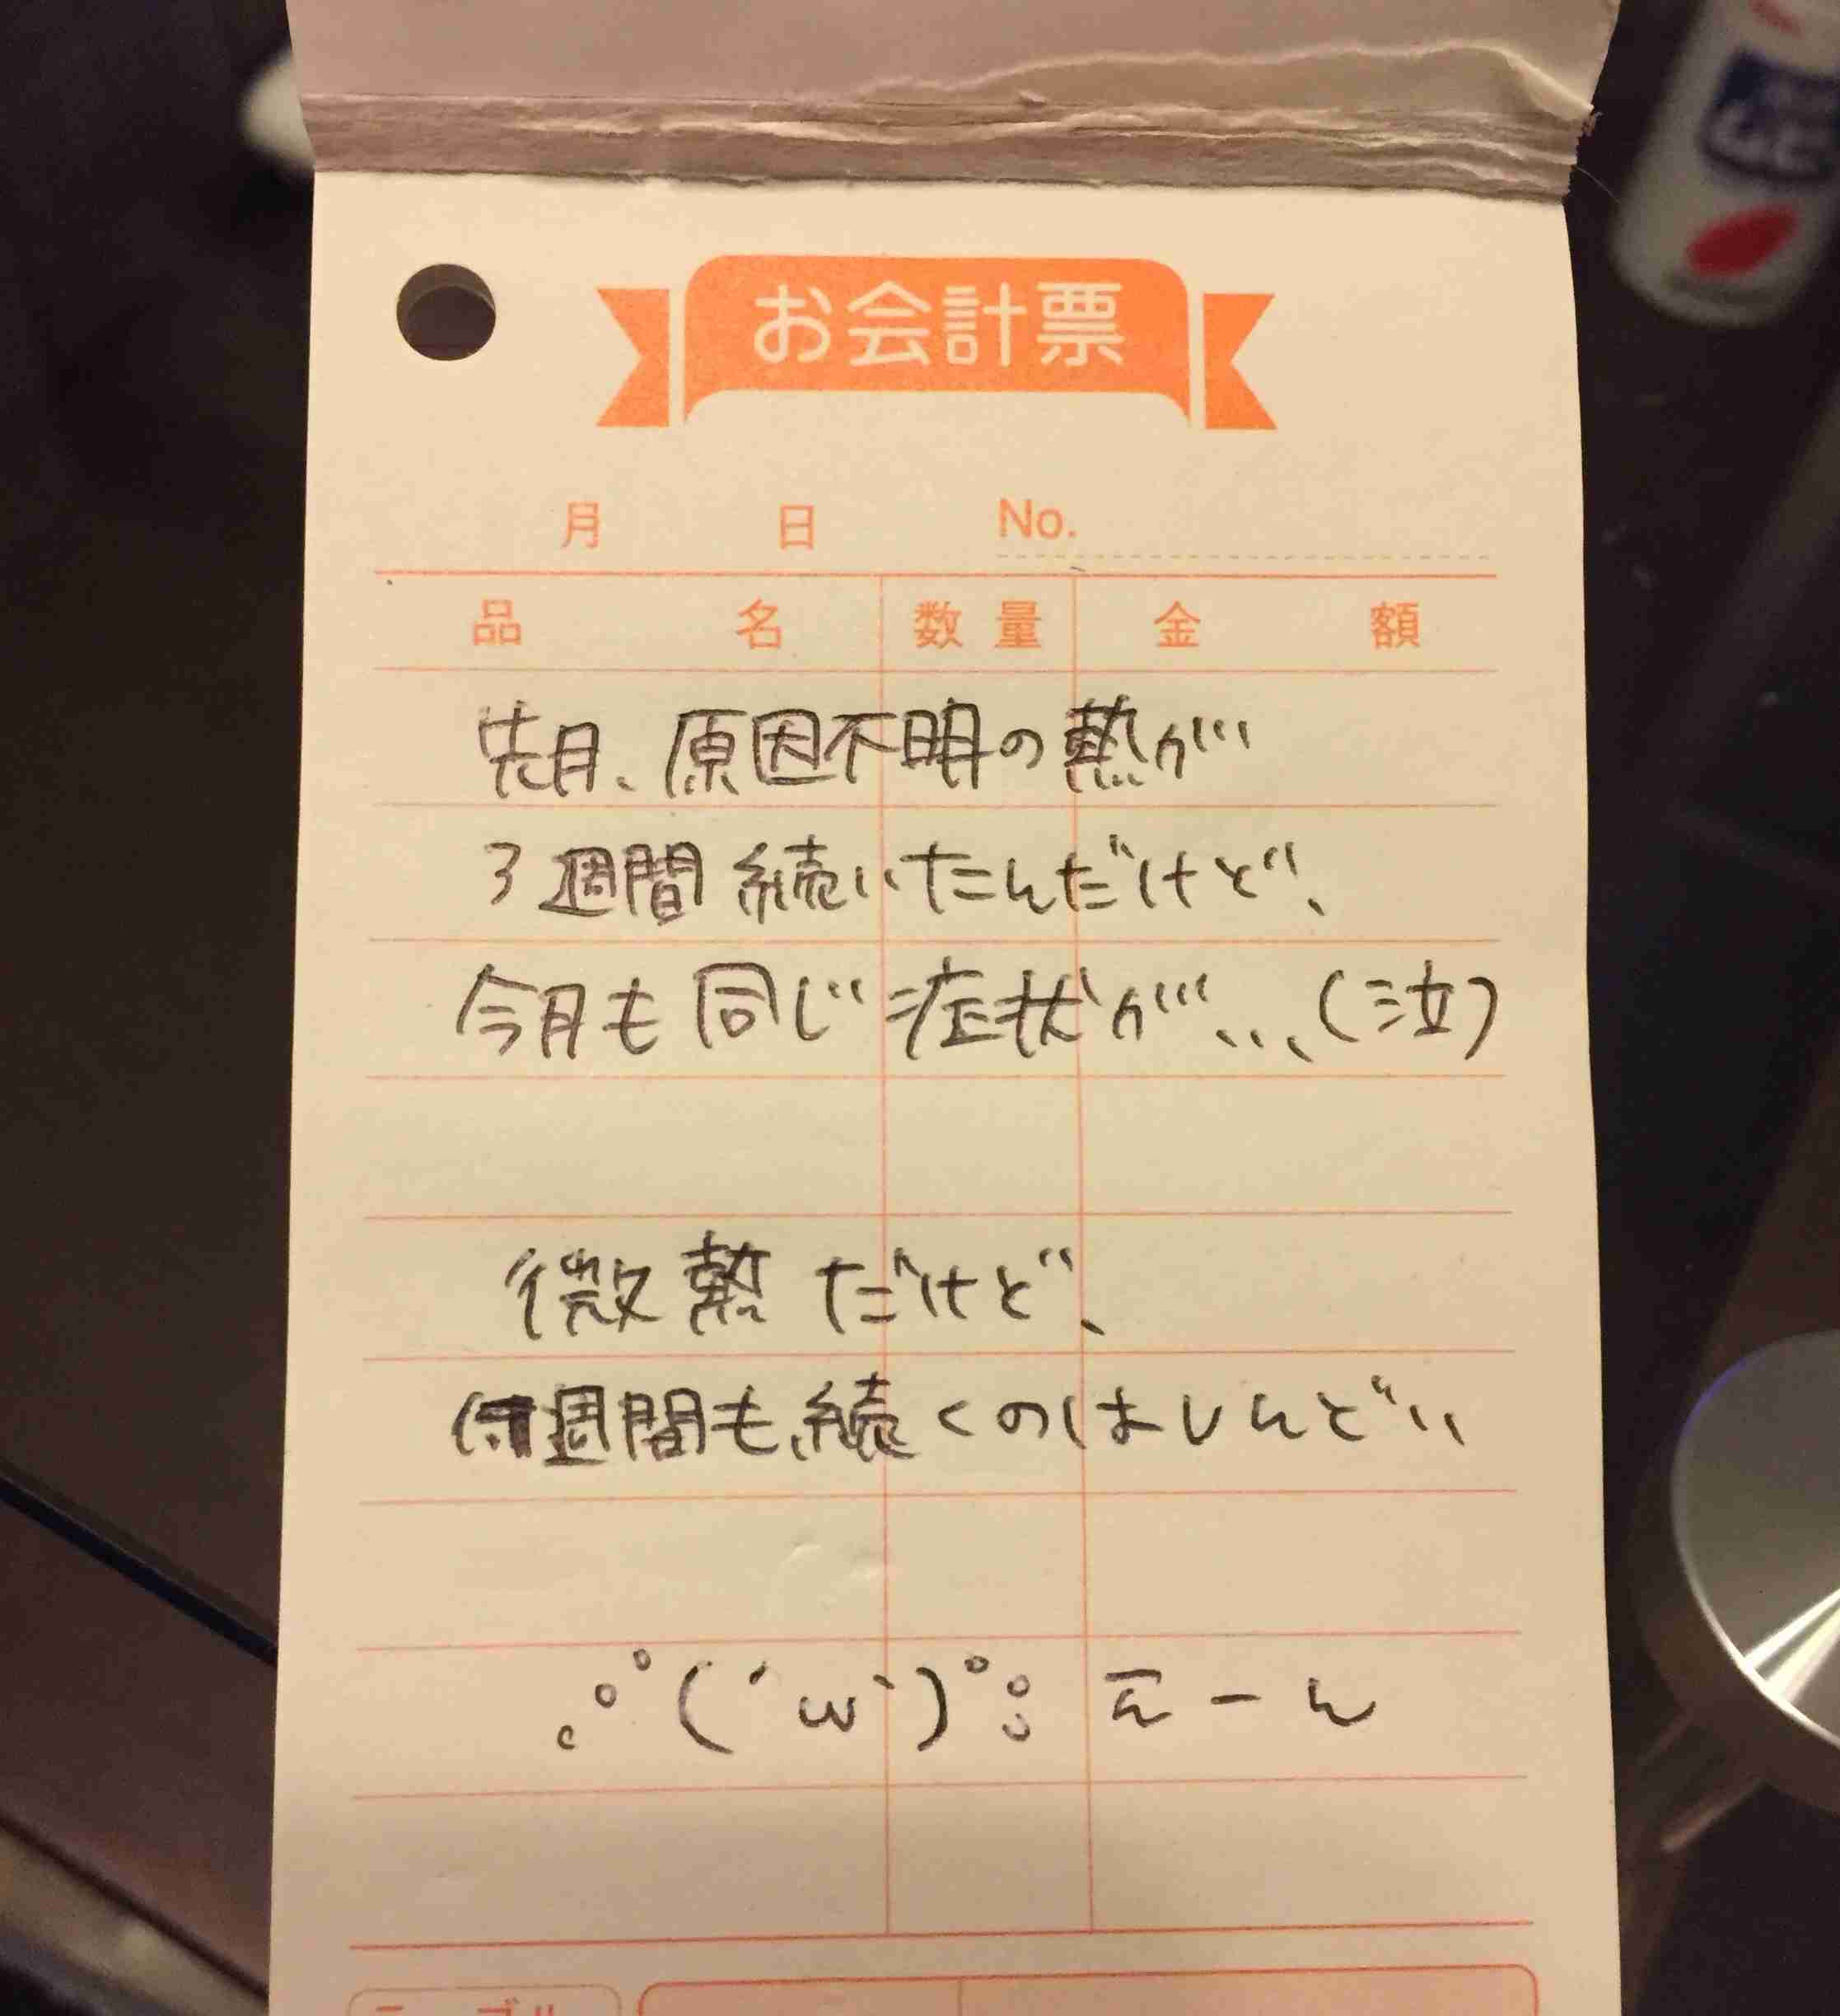 お会計票
月 日 No.
品名 数量 金額
先月、原因不明の熱が
3週間続いたんだけど、
今月も同じ症状が…(泣)
微熱だけど、
何週間も続くのはしんどい
.:°(´ω`)°: えーん
テーブル